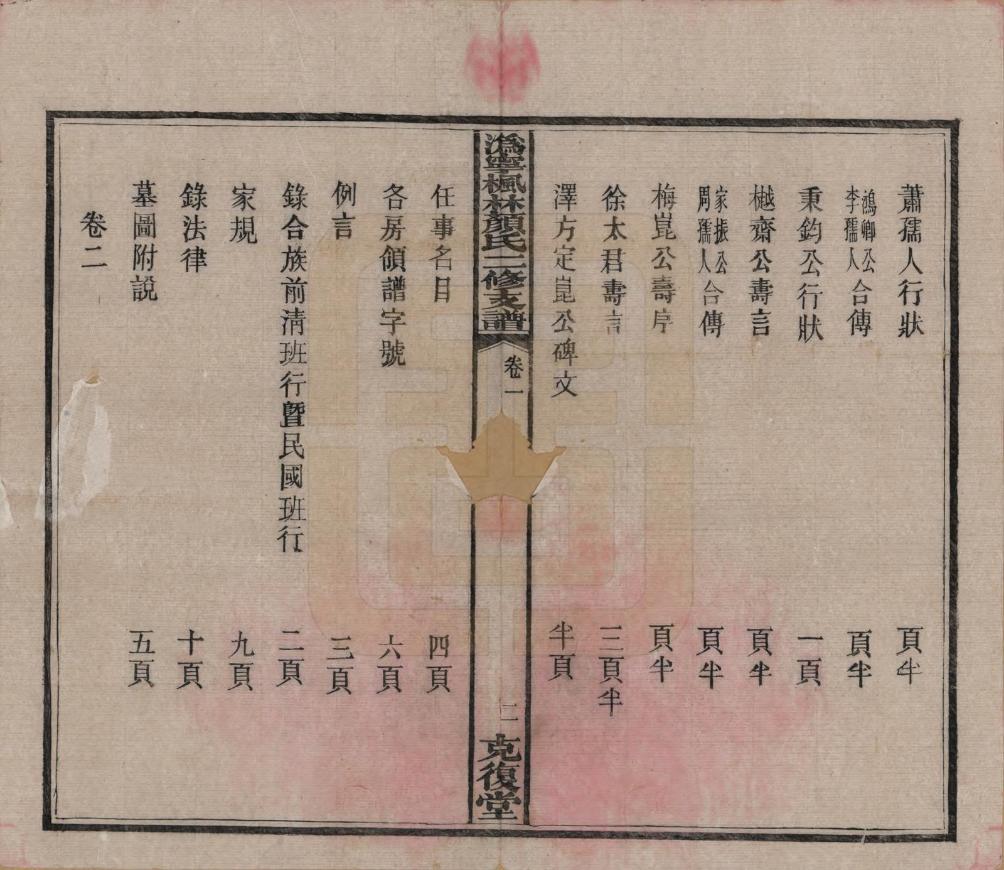 蕭孺人行狀　頁半
鴻卿公李孺人合傳　頁半
秉鈞公行狀　一頁
樾齋公壽言　頁半
家振公周孺人合傳　頁半
梅崑公壽序　頁半
徐太君壽言　三頁半
澤方定崑公碑文　半頁
溈寧楓林顏氏二修支譜　卷一　二　克復堂
任事名目　四頁
各房領譜字號　六頁
例言　三頁
錄合族前清班行暨民國班行　二頁
家規　九頁
錄法律　十頁
墓圖附說　五頁
卷二